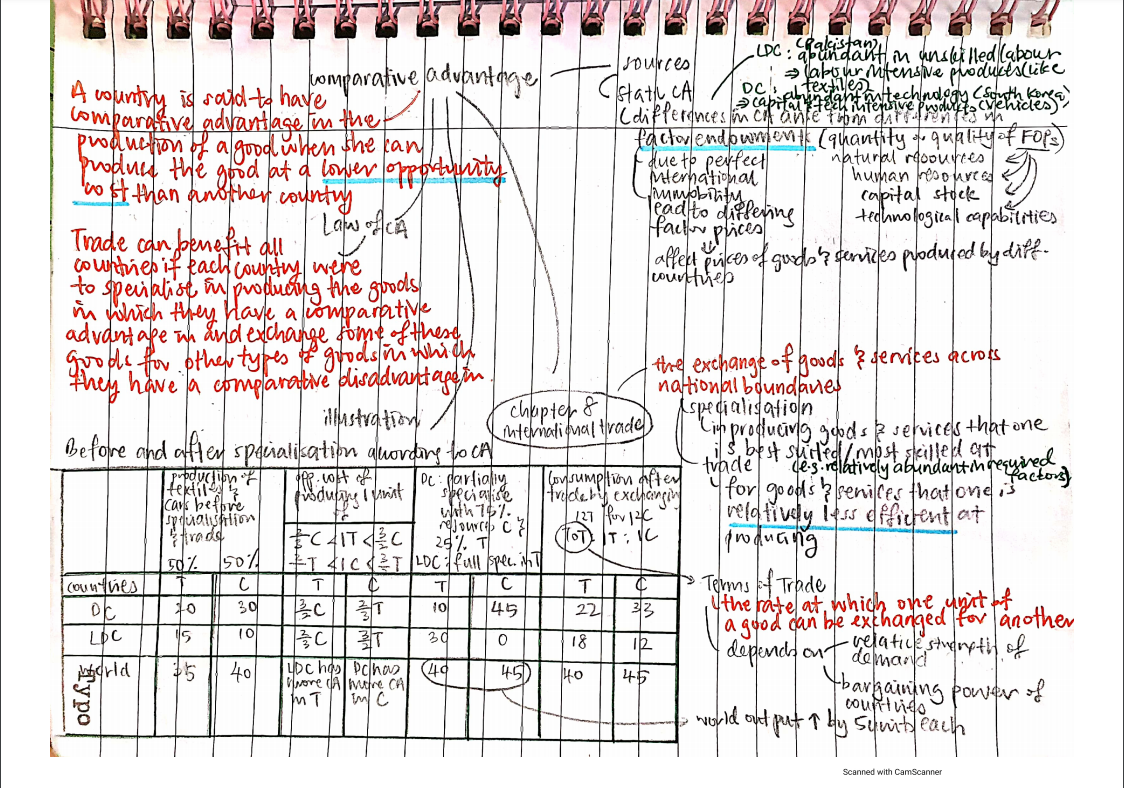 comparative advantage
sources
static CA
LDC: (Pakistan)
abundant in unskilled labour
⇒ labour intensive products (like
textiles)
DC: abundant in technology (South Korea)
⇒ capital & tech intensive products (vehicles)
(differences in CA arise from differences in
factor endowments (quantity & quality of FOPs)
natural resources
human resources
capital stock
technological capabilities
due to perfect
international
immobility
lead to differing
factor prices
affect prices of goods & services produced by diff.
countries
A country is said to have
comparative advantage in the
production of a good when she can
produce the good at a lower opportunity
cost than another country
Law of CA
Trade can benefit all
countries if each country were
to specialise in producing the goods
in which they have a comparative
advantage in and exchange some of these
goods for other types of goods in which
they have a comparative disadvantage in
illustration
chapter 8
international trade
the exchange of goods & services across
national boundaries
specialisation
in producing goods & services that one
is best suited/most skilled at
(e.g. relatively abundant in required
factors)
trade
for goods & services that one is
relatively less efficient at
producing
Before and after specialisation according to CA
production of
textiles &
cars before
specialisation
& trade
50% 50%
opp. cost of
producing 1 unit
of
2/3 C < 1T < 3/2 C
2/3 T < 1C < 3/2 T
DC: partially
specialise
with 75%
resources C &
25% T
LDC: full spec. in T
Consumption after
trade by exchanging
12T for 12C
TOT: 1T : 1C
countries T C T C T C T C
DC 20 30 3/2 C 2/3 T 10 45 22 33
LDC 15 10 2/3 C 3/2 T 30 0 18 12
World 35 40 LDC has
more CA
in T DC has
more CA
in C 40 45 40 45
Typo
Terms of Trade
the rate at which one unit of
a good can be exchanged for another
depends on
relative strength of
demand
bargaining power of
countries
world output ↑ by 5 units each
Scanned with CamScanner